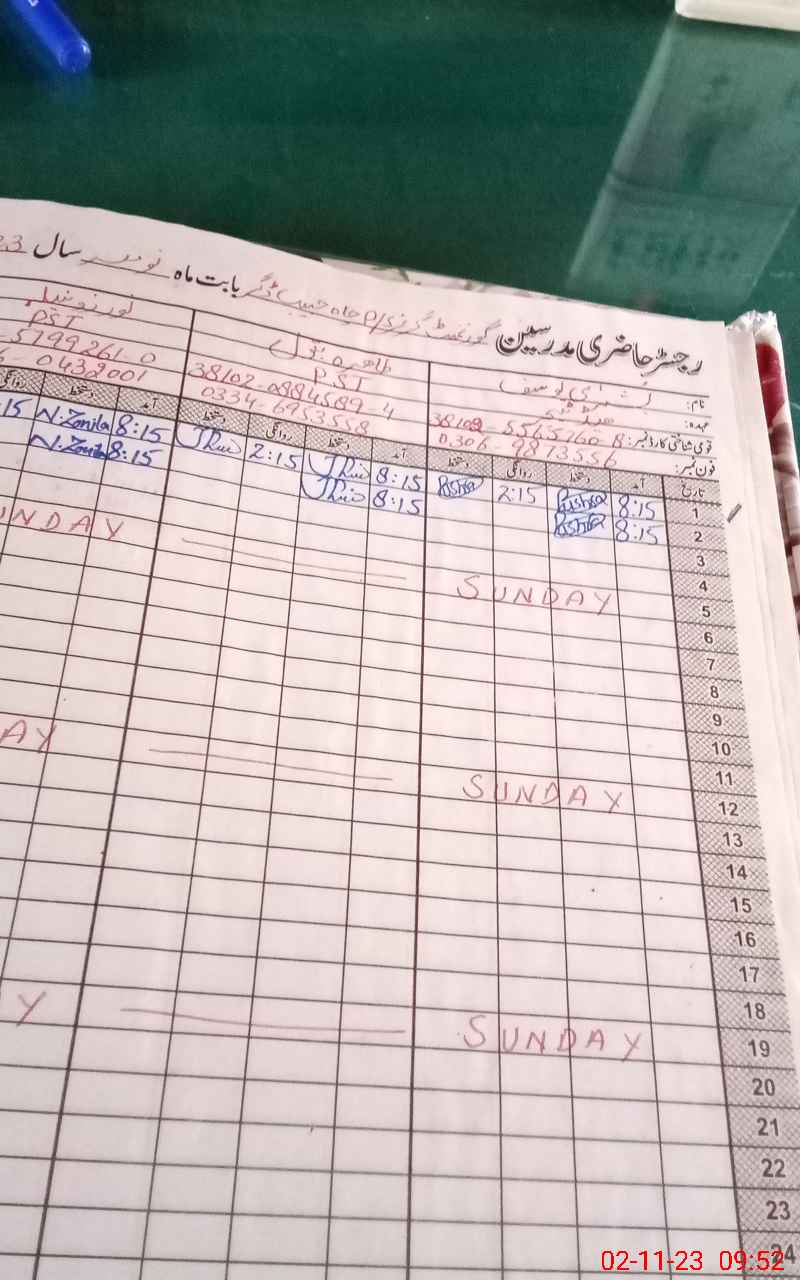 رجسٹر حاضری مدرسین گورنمنٹ گرلز P/S چاہ حبیب ڈگر بابت ماہ نومبر سال 23
نام: بشریٰ یوسف طاہرہ بتول
عہدہ: PST PST
قومی شناختی کارڈ نمبر: 38102-0884589-4 5799261-0
فون نمبر: 0306-9873556 0334-6953558 0432001
تاریخ آمد دستخط روانگی دستخط آمد دستخط روانگی دستخط آمد دستخط روانگی
1 8:15 Bushra 2:15 Bushra 8:15 2:15 8:15 N.Zonila :15
2 8:15 Bushra 8:15 8:15 N.Zonila
3
4
5 SUNDAY UNDAY
6
7
8
9
10
11
12 SUNDAY AY
13
14
15
16
17
18
19 SUNDAY Y
20
21
22
23
24
02-11-23 09:52